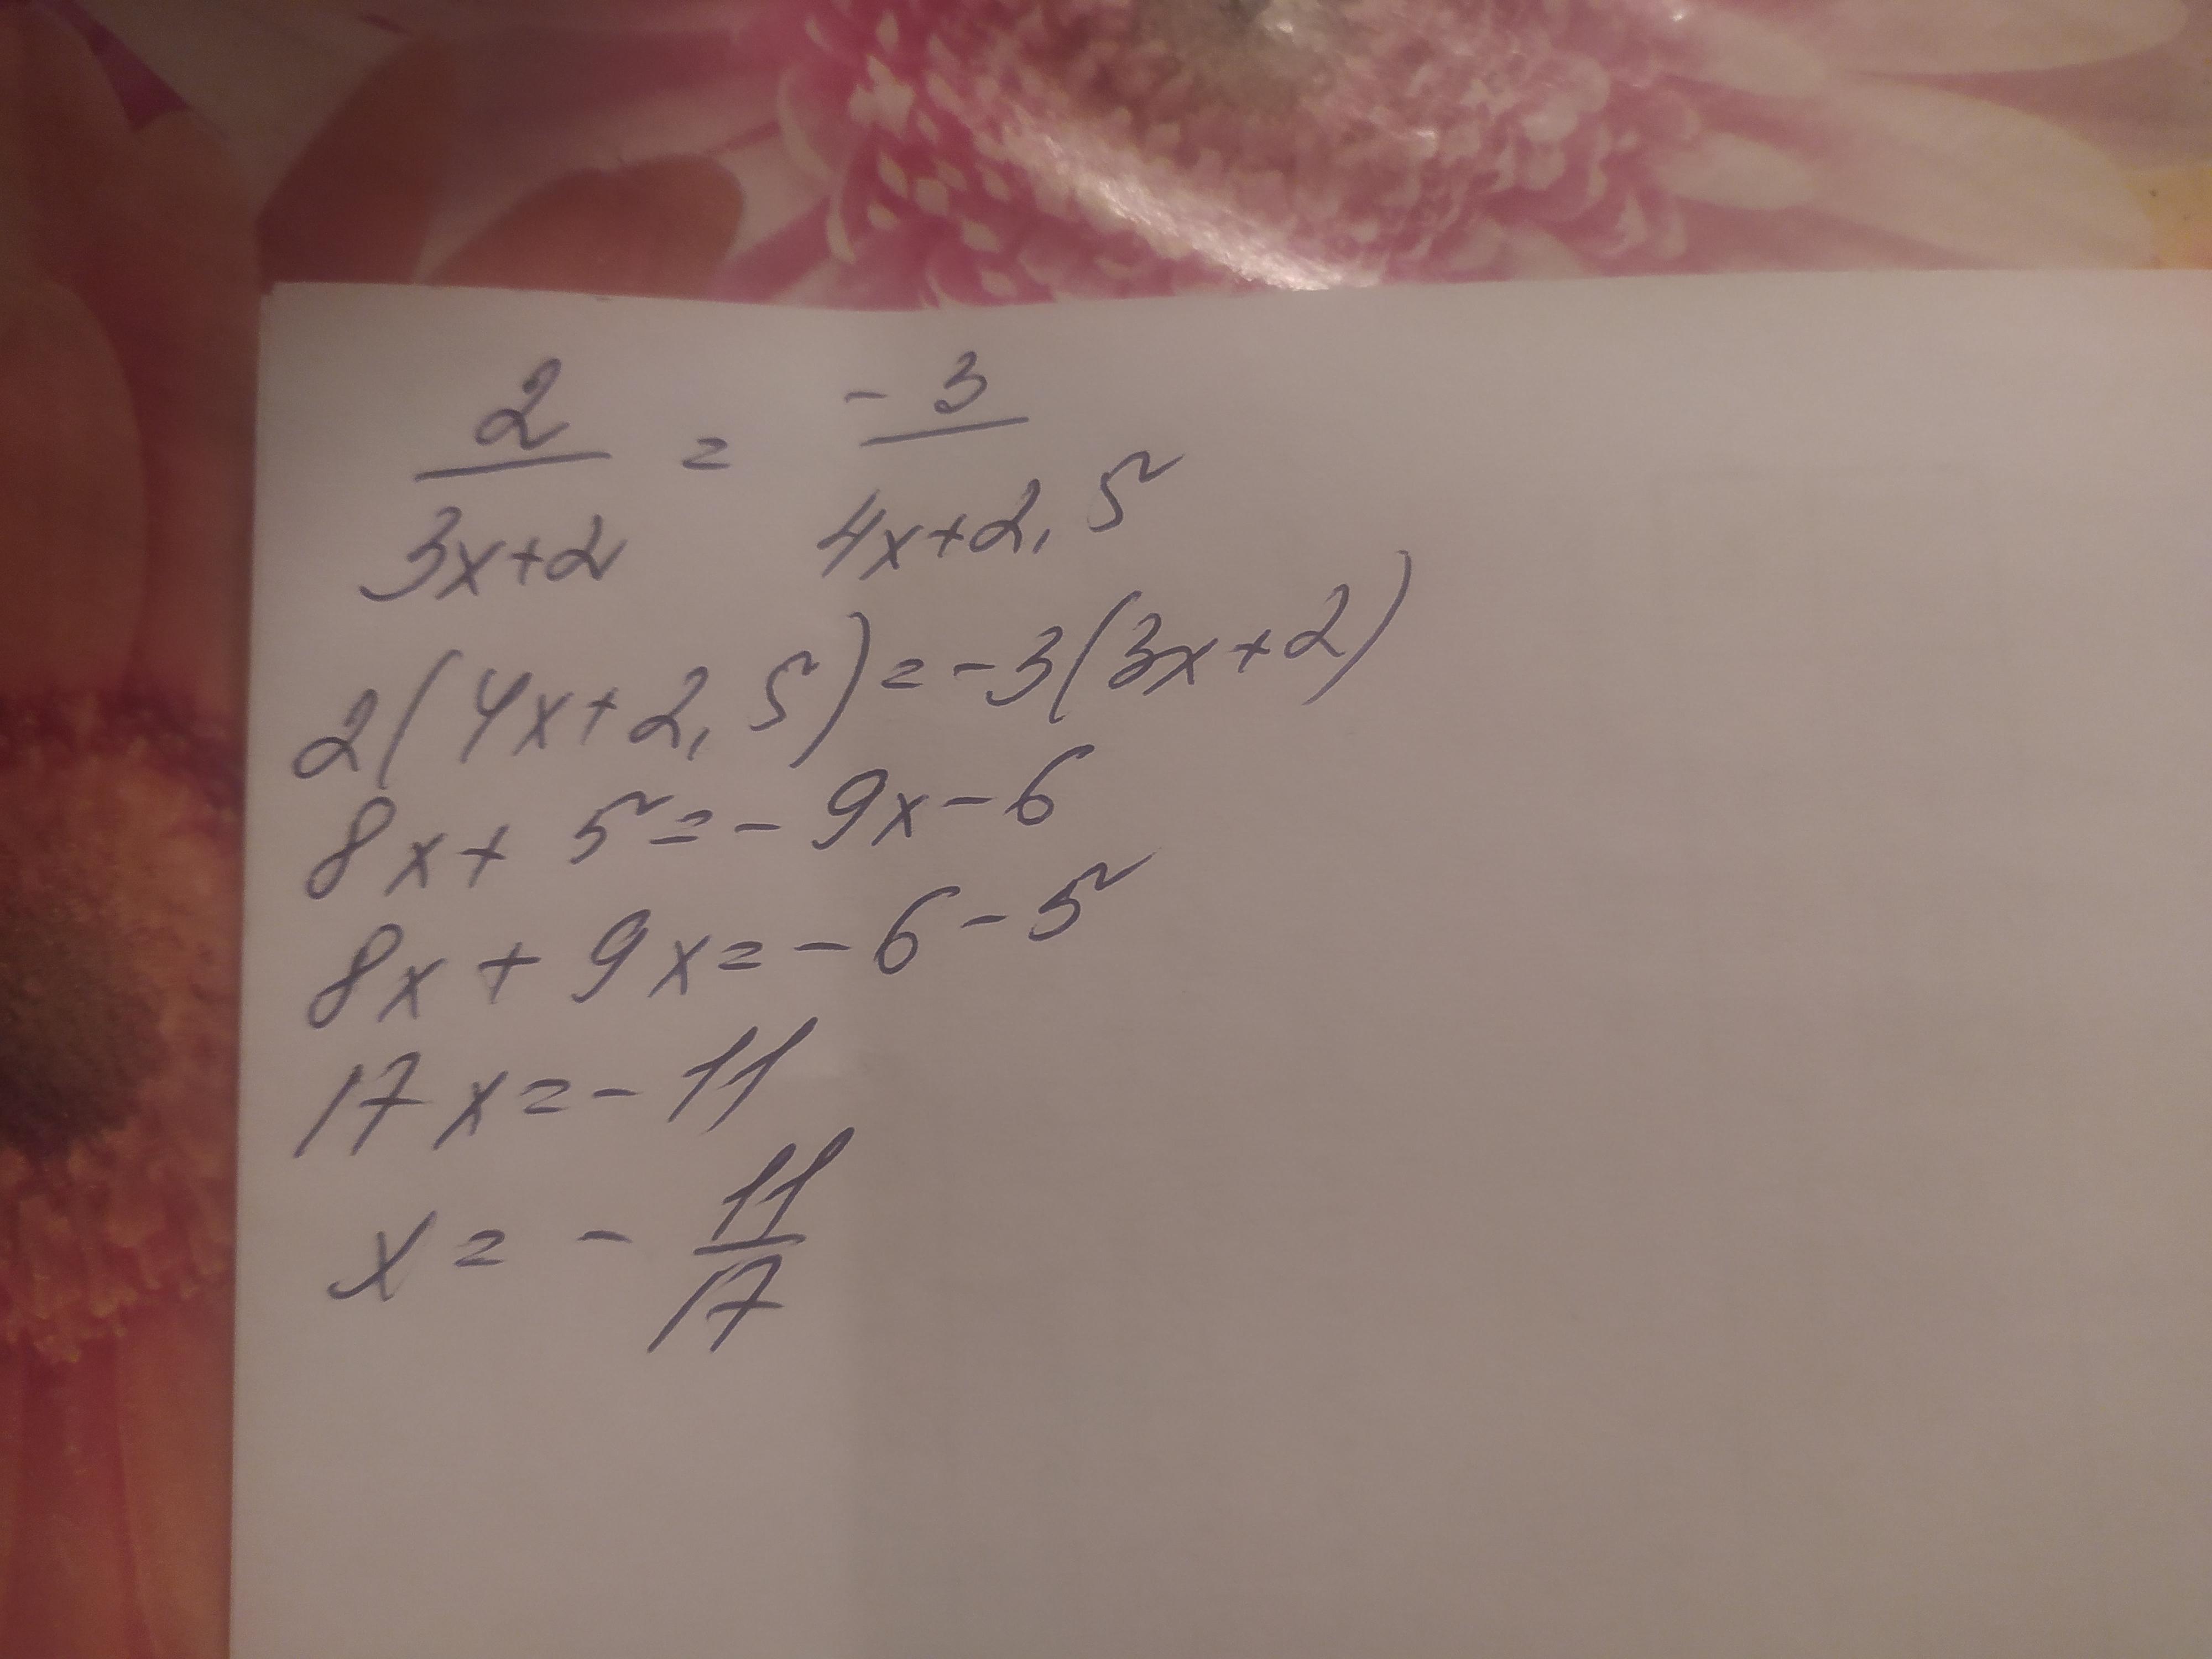 2/(3x+2) = -3/(4x+2,5)
2(4x+2,5)=-3(3x+2)
8x+5=-9x-6
8x+9x=-6-5
17x=-11
x=-11/17